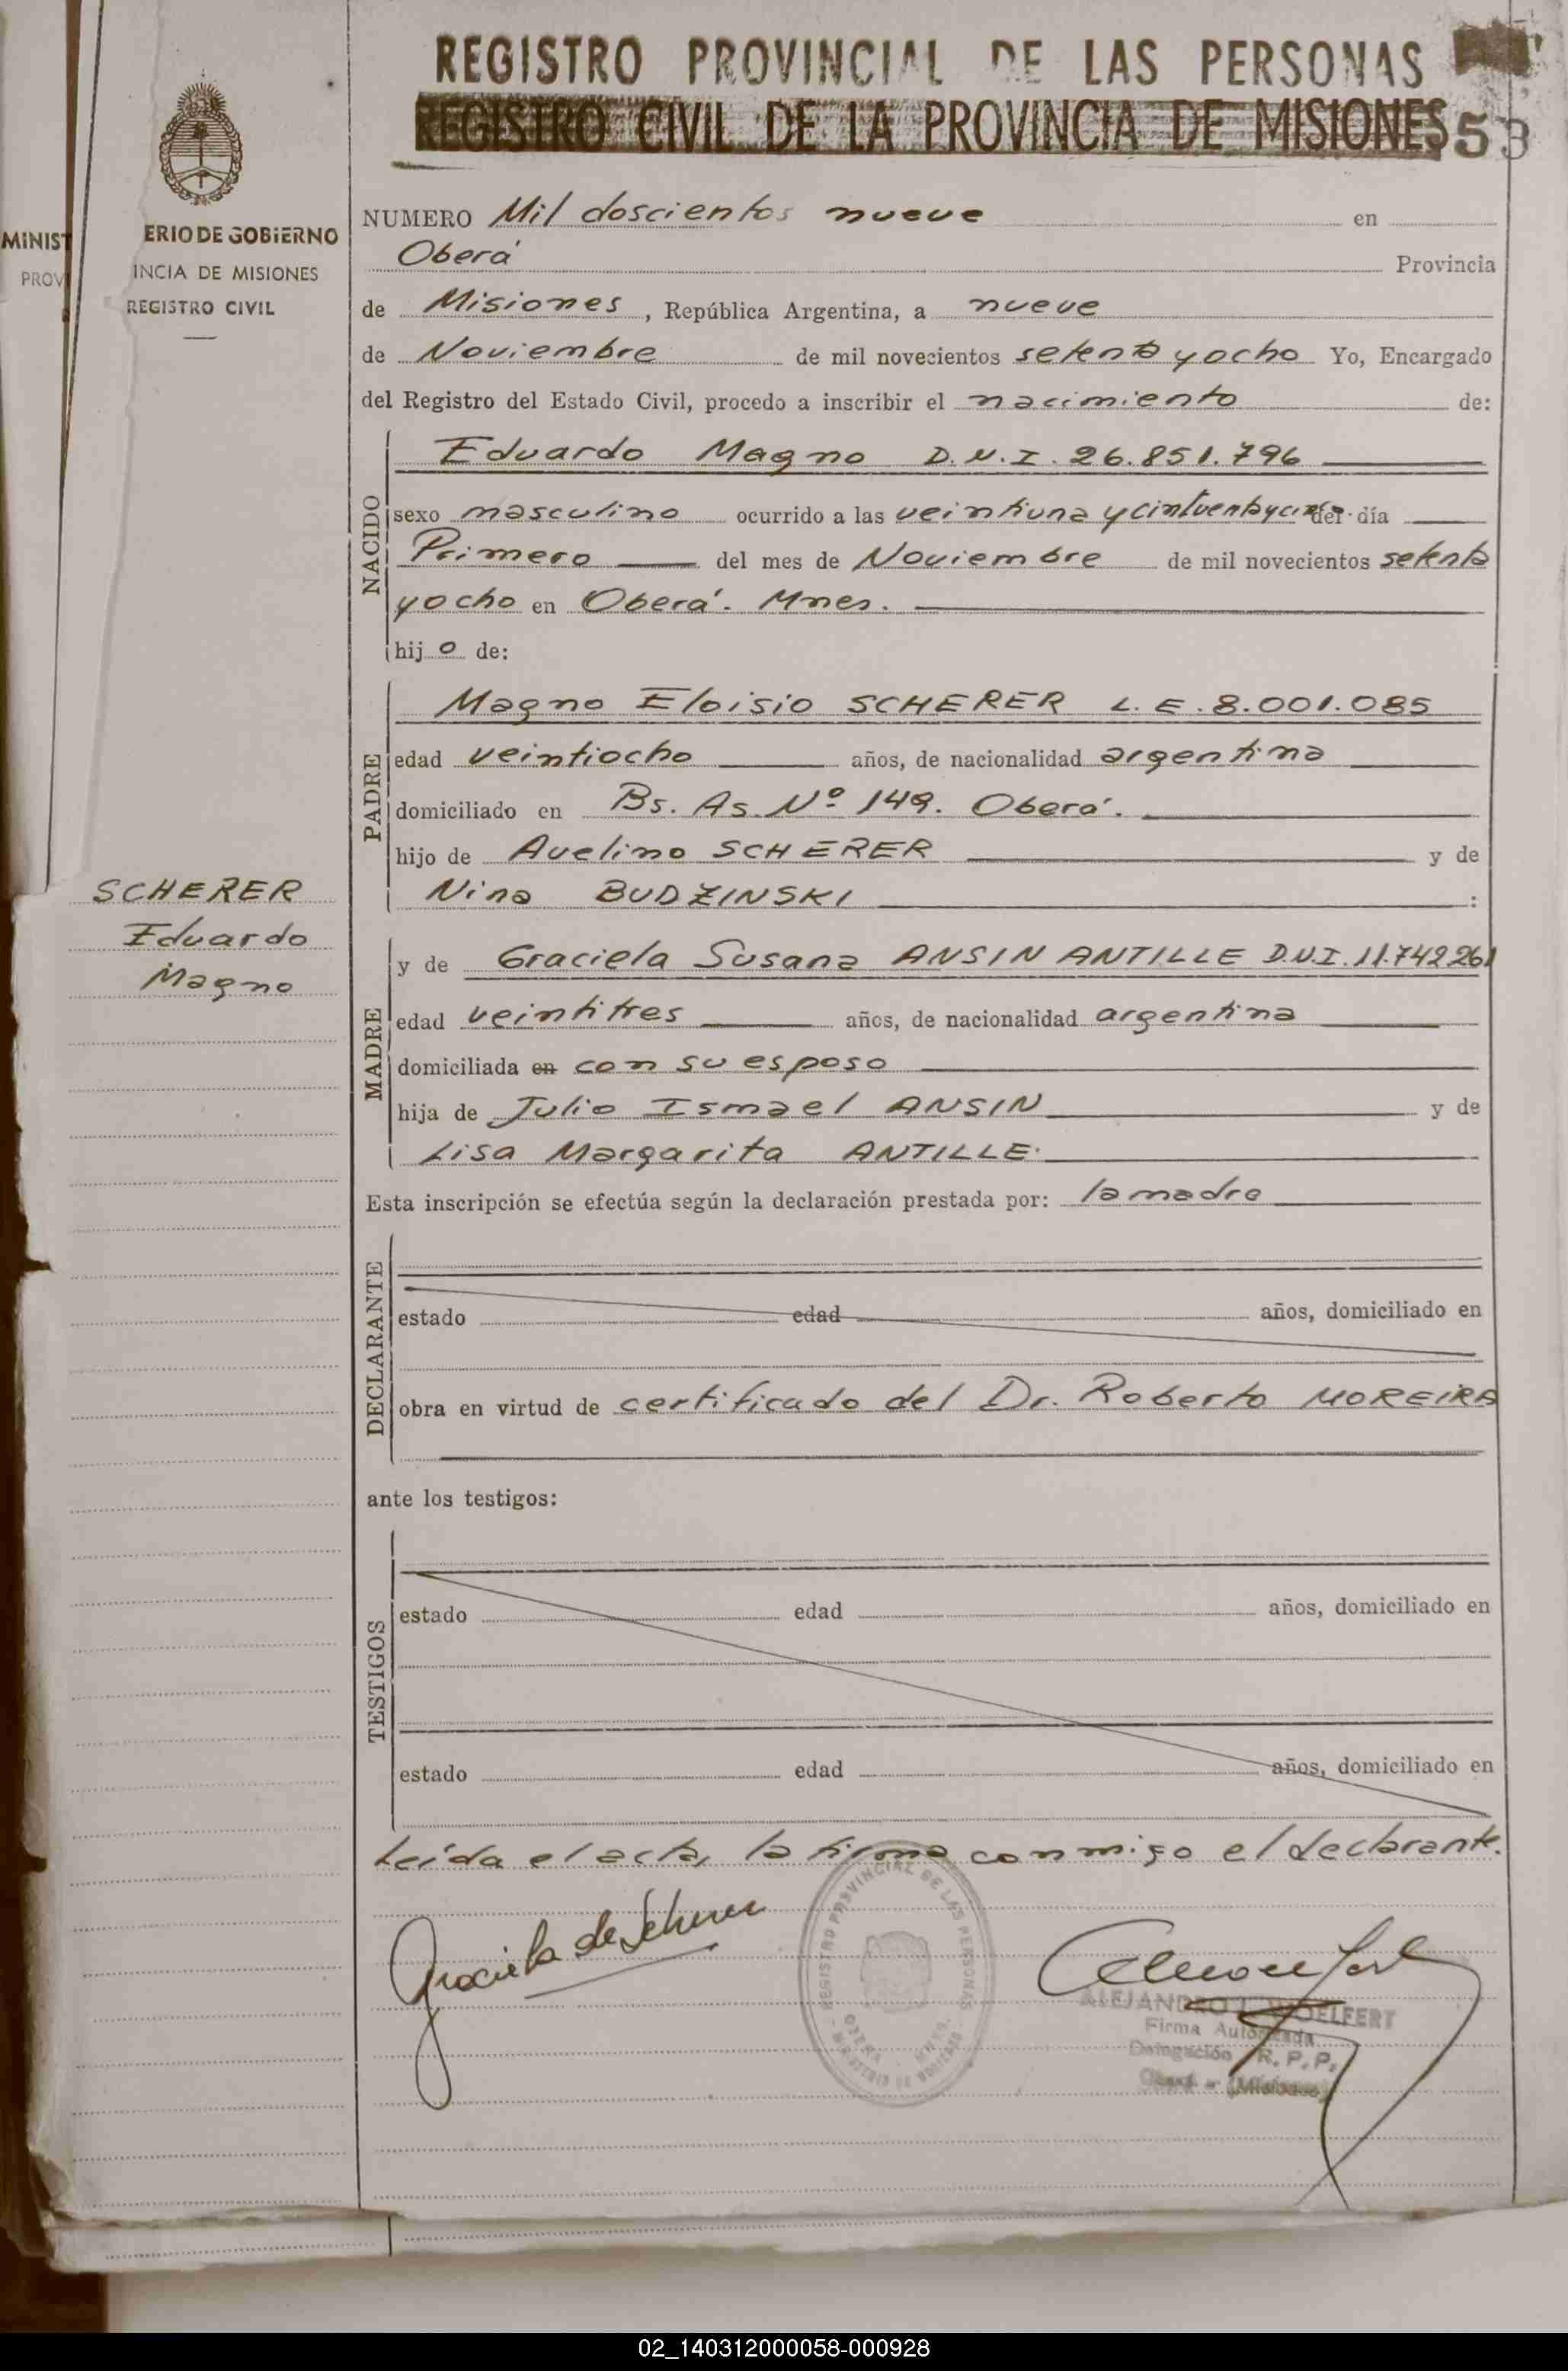 REGISTRO PROVINCIAL DE LAS PERSONAS
REGISTRO CIVIL DE LA PROVINCIA DE MISIONES 53
MINIST
PROV
ERIO DE GOBIERNO
INCIA DE MISIONES
REGISTRO CIVIL
NUMERO Mil doscientos nueve en
Oberá Provincia
de Misiones, República Argentina, a nueve
de Noviembre de mil novecientos setenta y ocho Yo, Encargado
del Registro del Estado Civil, procedo a inscribir el nacimiento de:
NACIDO
Eduardo Magno D.N.I. 26.851.796
sexo masculino ocurrido a las veintiuna y del día
Primero del mes de Noviembre de mil novecientos setenta
y ocho en Oberá. Mnes.
hij o de:
PADRE
Magno Eloisio SCHERER L.E. 8.001.085
edad veintiocho años, de nacionalidad argentina
domiciliado en Bs. As. Nº 149. Oberá.
hijo de Avelino SCHERER y de
Nina BUDZINSKI :
SCHERER
Eduardo
Magno
MADRE
y de Graciela Susana ANSIN ANTILLE D.N.I. 11.742261
edad veintitres años, de nacionalidad argentina
domiciliada en con su esposo
hija de Julio Ismael ANSIN y de
Lisa Margarita ANTILLE.
Esta inscripción se efectúa según la declaración prestada por: la madre
DECLARANTE
estado edad años, domiciliado en
obra en virtud de certificado del Dr. Roberto MOREIRA
ante los testigos:
TESTIGOS
estado edad años, domiciliado en
estado edad años, domiciliado en
Leída el acta, la firma conmigo el declarante.
Graciela de Scherer
REGISTRO PROVINCIAL DE LAS PERSONAS
ALEJANDRO L. WOELFERT
Firma Autorizada
Delegación R.P.P.
Oberá - (Misiones)
02_140312000058-000928